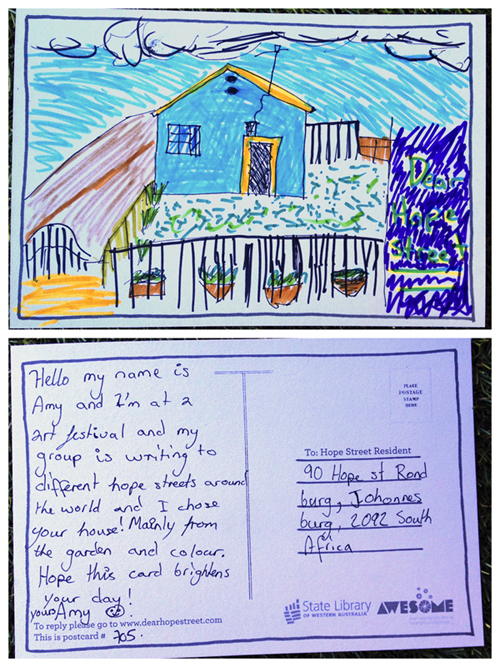 Dear
Hope
Street
Hello my name is
Amy and I'm at a
art festival and my
group is writing to
different hope streets around
the world and I chose
your house! Mainly from
the garden and colour.
Hope this card brightens
your day!
yours Amy
To reply please go to www.dearhopestreet.com
This is postcard # 705.
PLACE
POSTAGE
STAMP
HERE
To: Hope Street Resident
90 Hope st Rand
burg, Johannes
burg, 2092 South
Africa
State Library
OF WESTERN AUSTRALIA
AWESOME